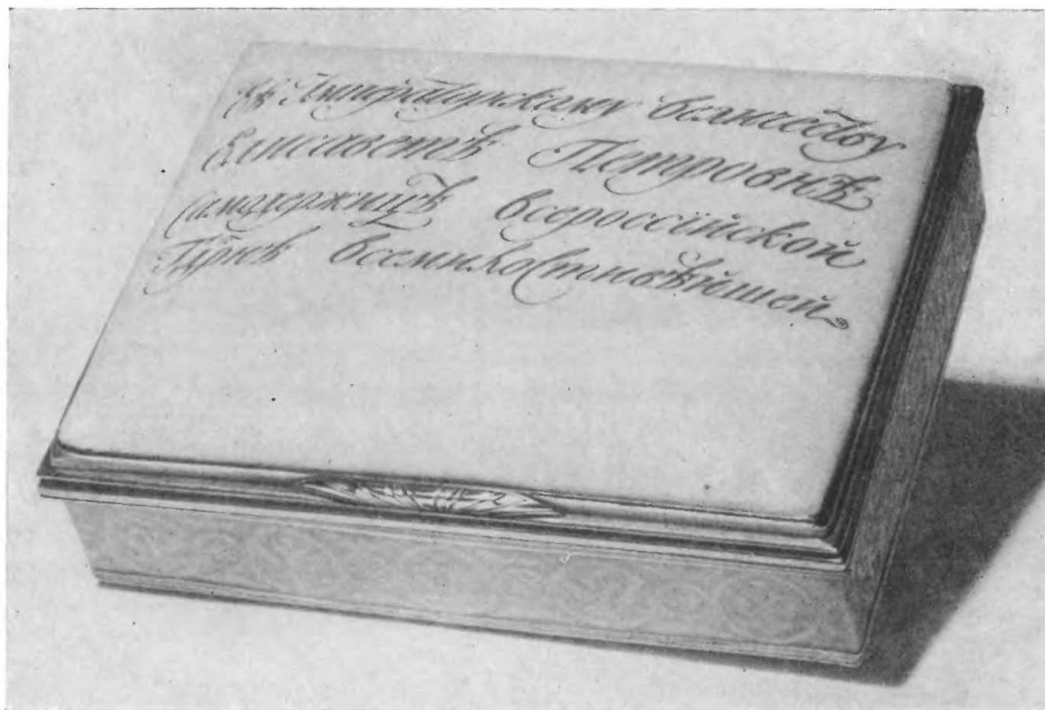 Ея Імператорскому величеству
Елисаветѣ Петровнѣ
самодержицѣ всероссїйской
всемилостивѣйшей